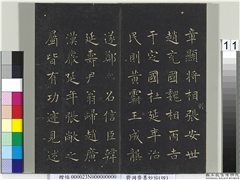 韋顯將相則張安世
趙充國魏相丙吉
于定國杜延年治
民則黃霸王成龔
遂鄭召信臣韓
延壽尹翁歸趙廣
漢嚴延年張敞之
屬皆有功迹見述
000023N000000000